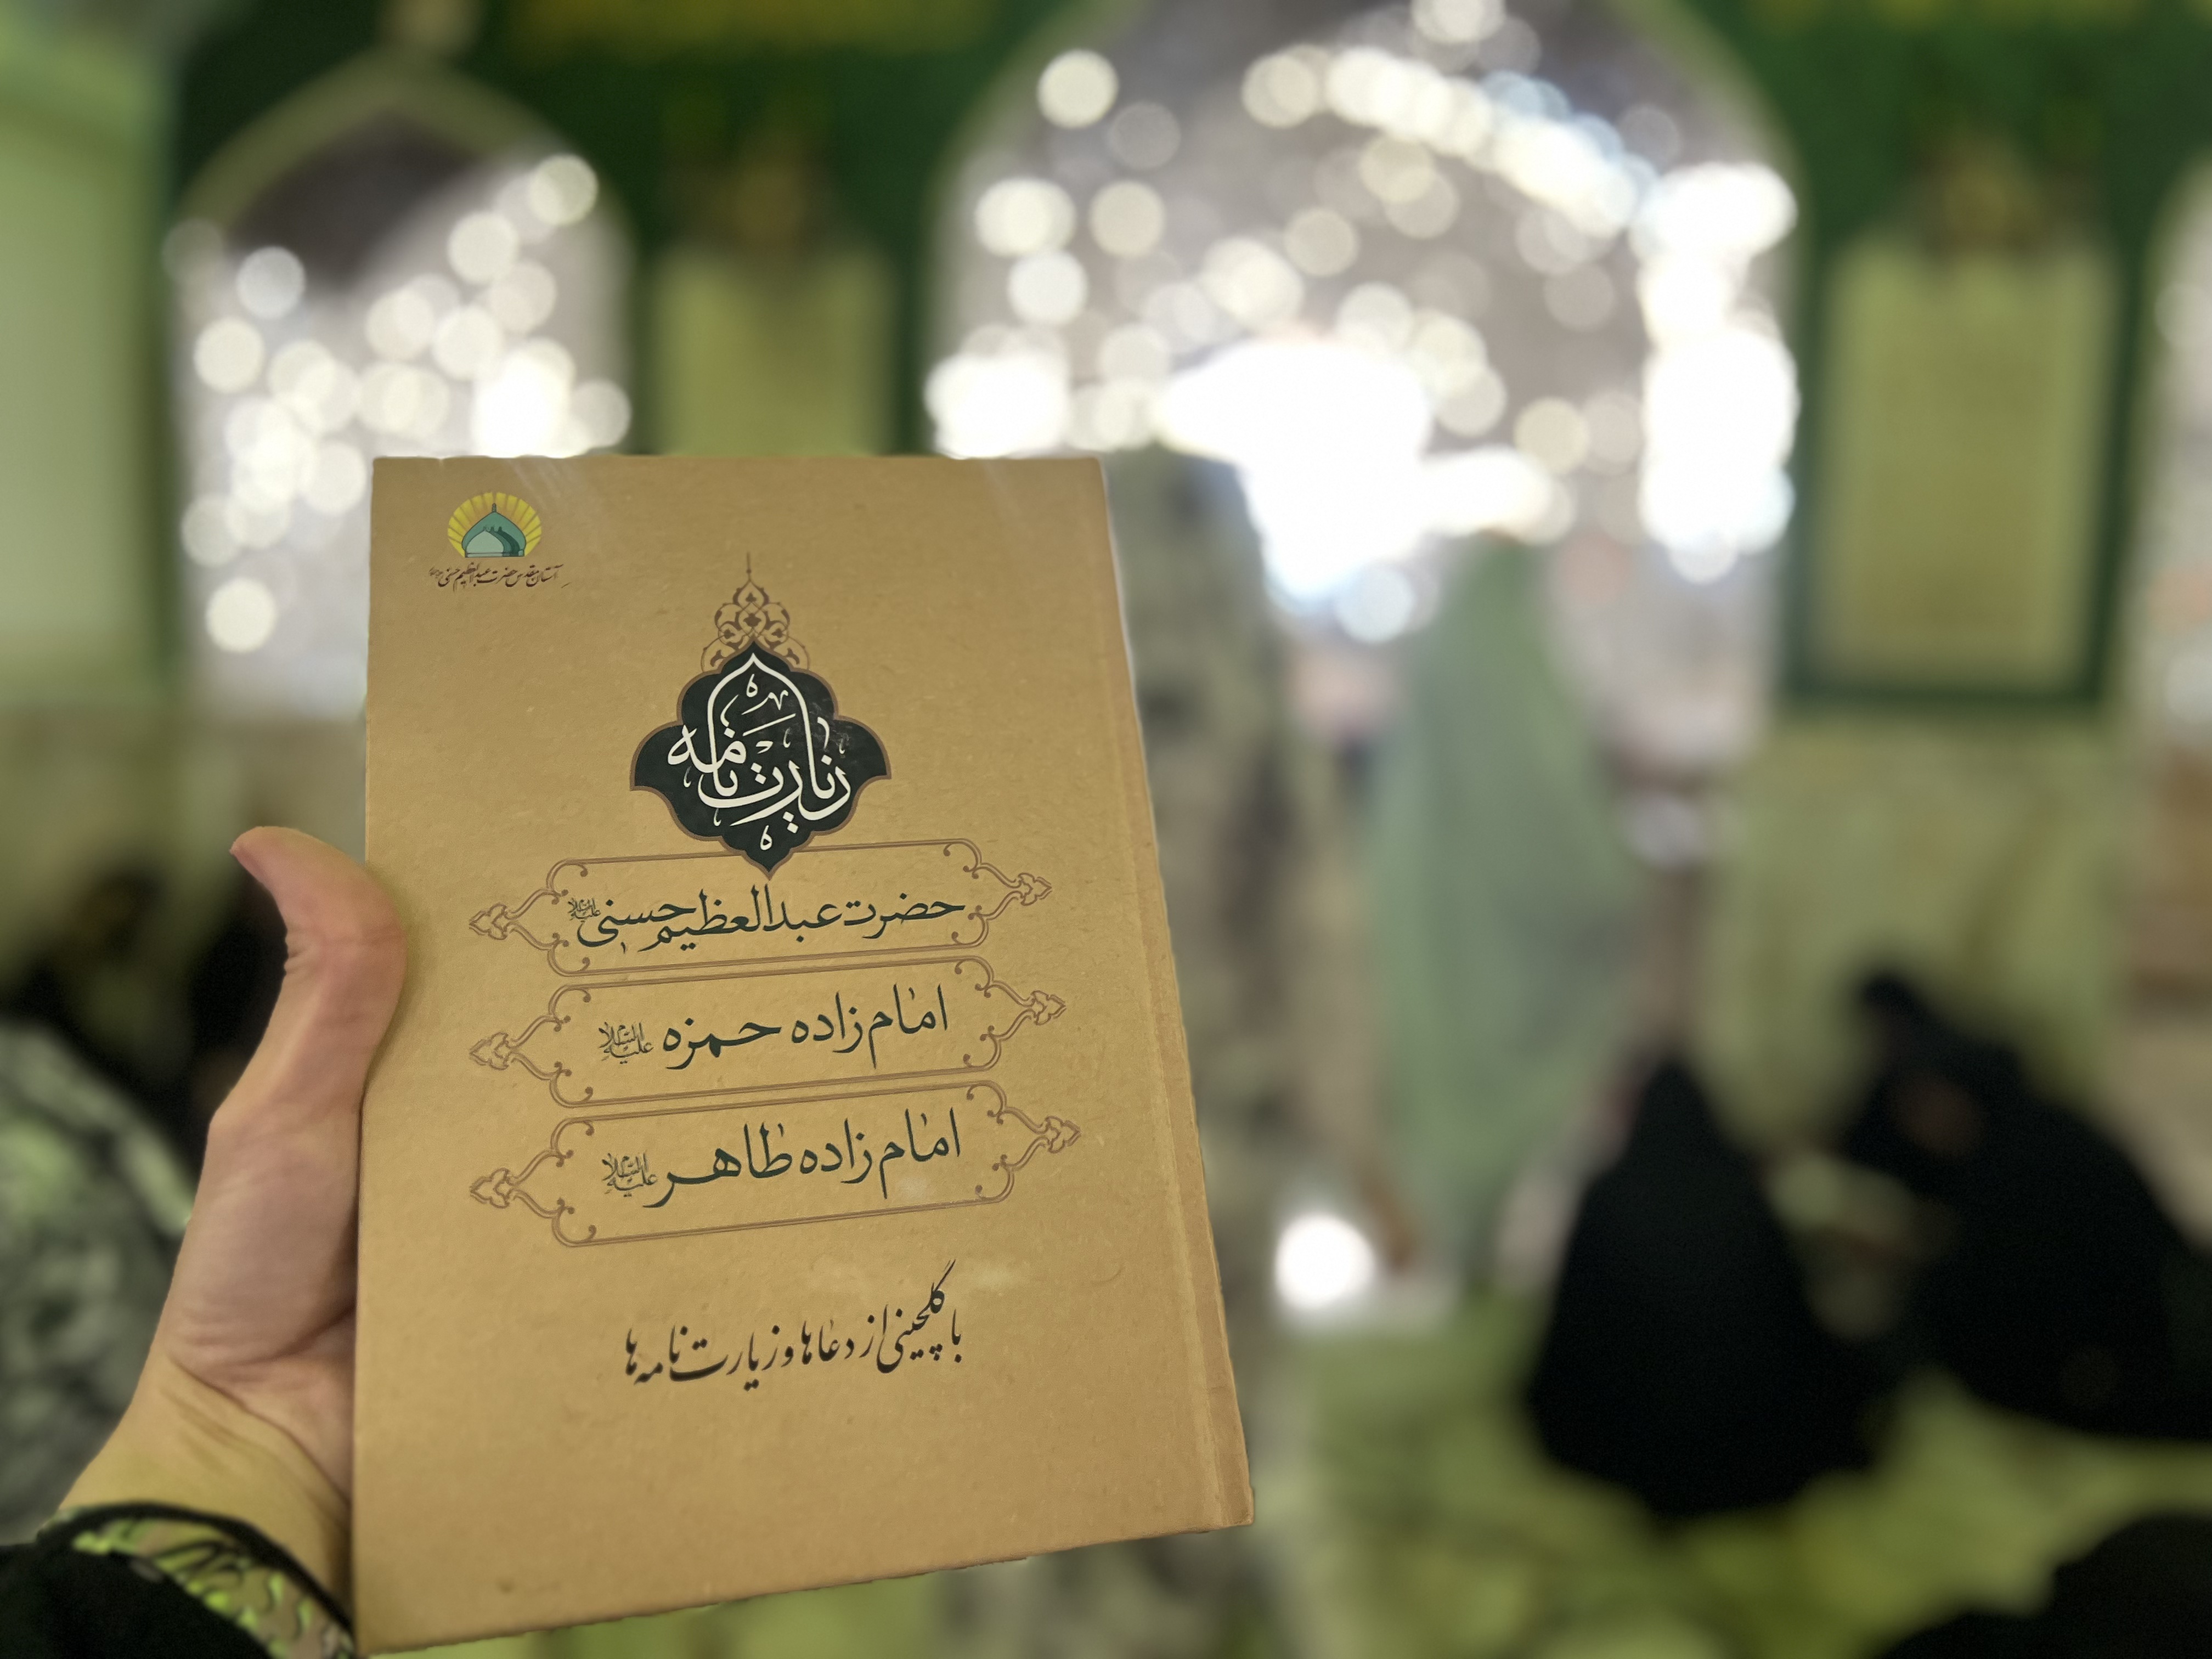 آستان مقدس حضرت عبدالعظیم حسنی علیه‌السلام
زیارت‌نامه
حضرت عبدالعظیم حسنی علیه‌السلام
امام‌زاده حمزه علیه‌السلام
امام‌زاده طاهر علیه‌السلام
با گلچینی از دعاها و زیارت‌نامه‌ها